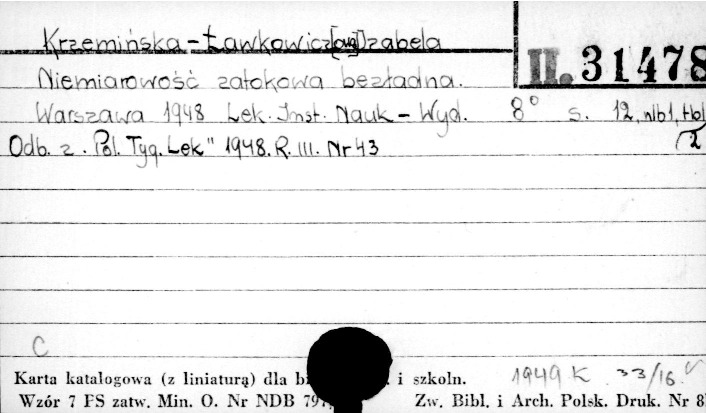 Krzemińska-Ławkowicz Izabela
II. 31478
Niemiarowość zatokowa bezładna.
Warszawa 1948 Lek. Inst. Nauk-Wyd. 8° s. 12, nlb1, tbl
2
Odb. z. Pol. Tyg. Lek" 1948. R. III. Nr 43
C
1949 K 33/16
Karta katalogowa (z liniaturą) dla i szkoln.
Wzór 7 FS zatw. Min. O. Nr NDB 797 Zw. Bibl. i Arch. Polsk. Druk. Nr 8